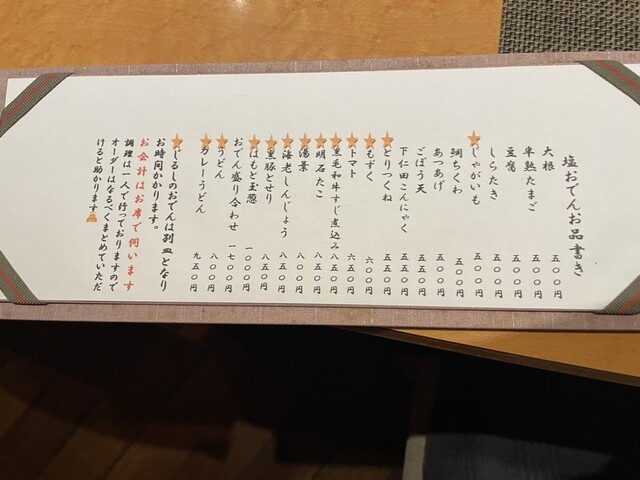 塩おでんお品書き
大根 五〇〇円
半熟たまご 五〇〇円
豆腐 五〇〇円
しらたき 五〇〇円
★じゃがいも 五〇〇円
鯛ちくわ 五〇〇円
あつあげ 五五〇円
ごぼう天 五五〇円
下仁田こんにゃく 五五〇円
★とりつくね 五五〇円
★もずく 六〇〇円
★トマト 六五〇円
★黒毛和牛すじ煮込み 八五〇円
★明石たこ 八五〇円
★湯葉 八〇〇円
★海老しんじょう 八五〇円
★黒豚とせり 八五〇円
★はもと玉葱 一〇〇〇円
おでん盛り合わせ 一七〇〇円
★うどん 八〇〇円
★カレーうどん 九五〇円
★じるしのおでんは別皿となり
お時間かかります。
お会計はお席で伺います
調理は一人で行っておりますので
オーダーはなるべくまとめていただ
けると助かります🙇